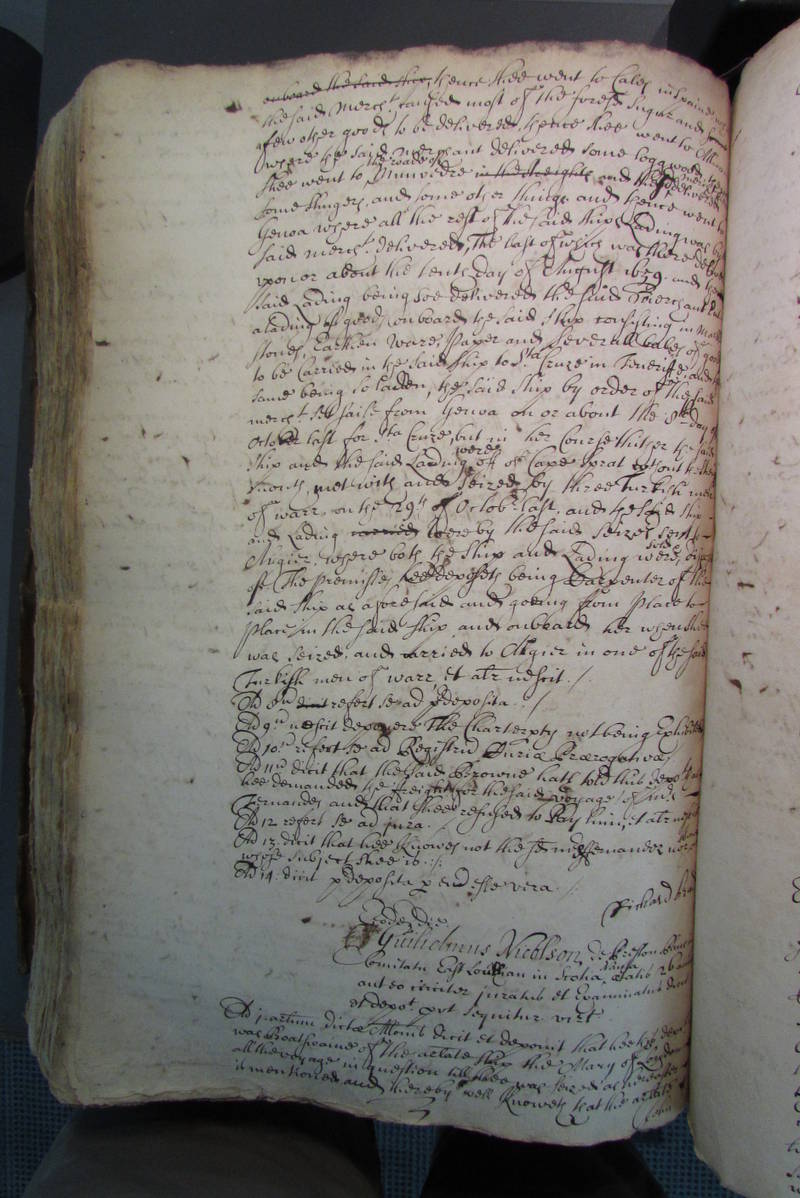 onboard the said ship, thence shee went to Cales in Spaine
the said Merct. caused most of the foresd Sugar and
few other goods to be delivered thence shee went to
where the said merchant delivered some loggwood
the roade of
shee went to Munvedre in the Streights and there delivered
some things, and some other things and thence went to
Genoa where all the rest of the said ships Lading was by
said Merct. delivered, the last of which was there
upon or about the tenth day of August 1679. and the
said Lading being soe delivered the said Merchant
alading of goods onboard the said ship consisting in
stones, Earthen ware, Paper and severall bales of goods
to be carried in the said ship to Sta Cruze in Teneriffe, and
same being so laden, the said ship by order of the said
merct. set saile from Genoa on or about the 8th day of
October last for Sta Cruze, but in her Course thither the said
were
ship and the said Lading off of Cape Sprat
mouth, met with and seized by three Turkish men
of warr, on the 29th of Octobr. last, and the said ship
and Lading carried were by the said seizers sent to
Algier, where both the ship and Lading were
sold
of. The premisses hee deposeth being Carpenter of the
said ship as aforesaid and goeing from place to
place in the said ship and onboard her when shee
was seized, and carried to Algier in one of the said
Turkish men of warr, et alr nescit. /
Ad 8um dicit refert se ad predeposita. /
Ad 9um nescit deponere The Charterpty not being
Ad 10um refert se ad Registru Curiæ Prærogativæ
Ad 11um dicit that the said Browne hath told this
hee demanded the freight for the said voyage of
Fernandes and that shee refused to Pay him, et alr
Ad 12. refert se ad jura. /
Ad 13. dicit that hee knowes not the Fernandez nor
whose subject shee is. /.
Ad 14. dicit predeposita per eum esse vera. /
Richard
Eodem die.
Guilielmus Nicolson de Preston
Comitatu East Louthian in Scotia Nauta ætatis 26
ant eo circiter juratus et Examinatus dicit
et depot. put sequitur vizt.
Ad partium dictæ Allonis dicit et deponit that hee
was Boatswaine of the arlate ship the Mary of London
all the voyage in question till shee was seized as hereafter
is mentioned and thereby well knoweth that the arlate
John